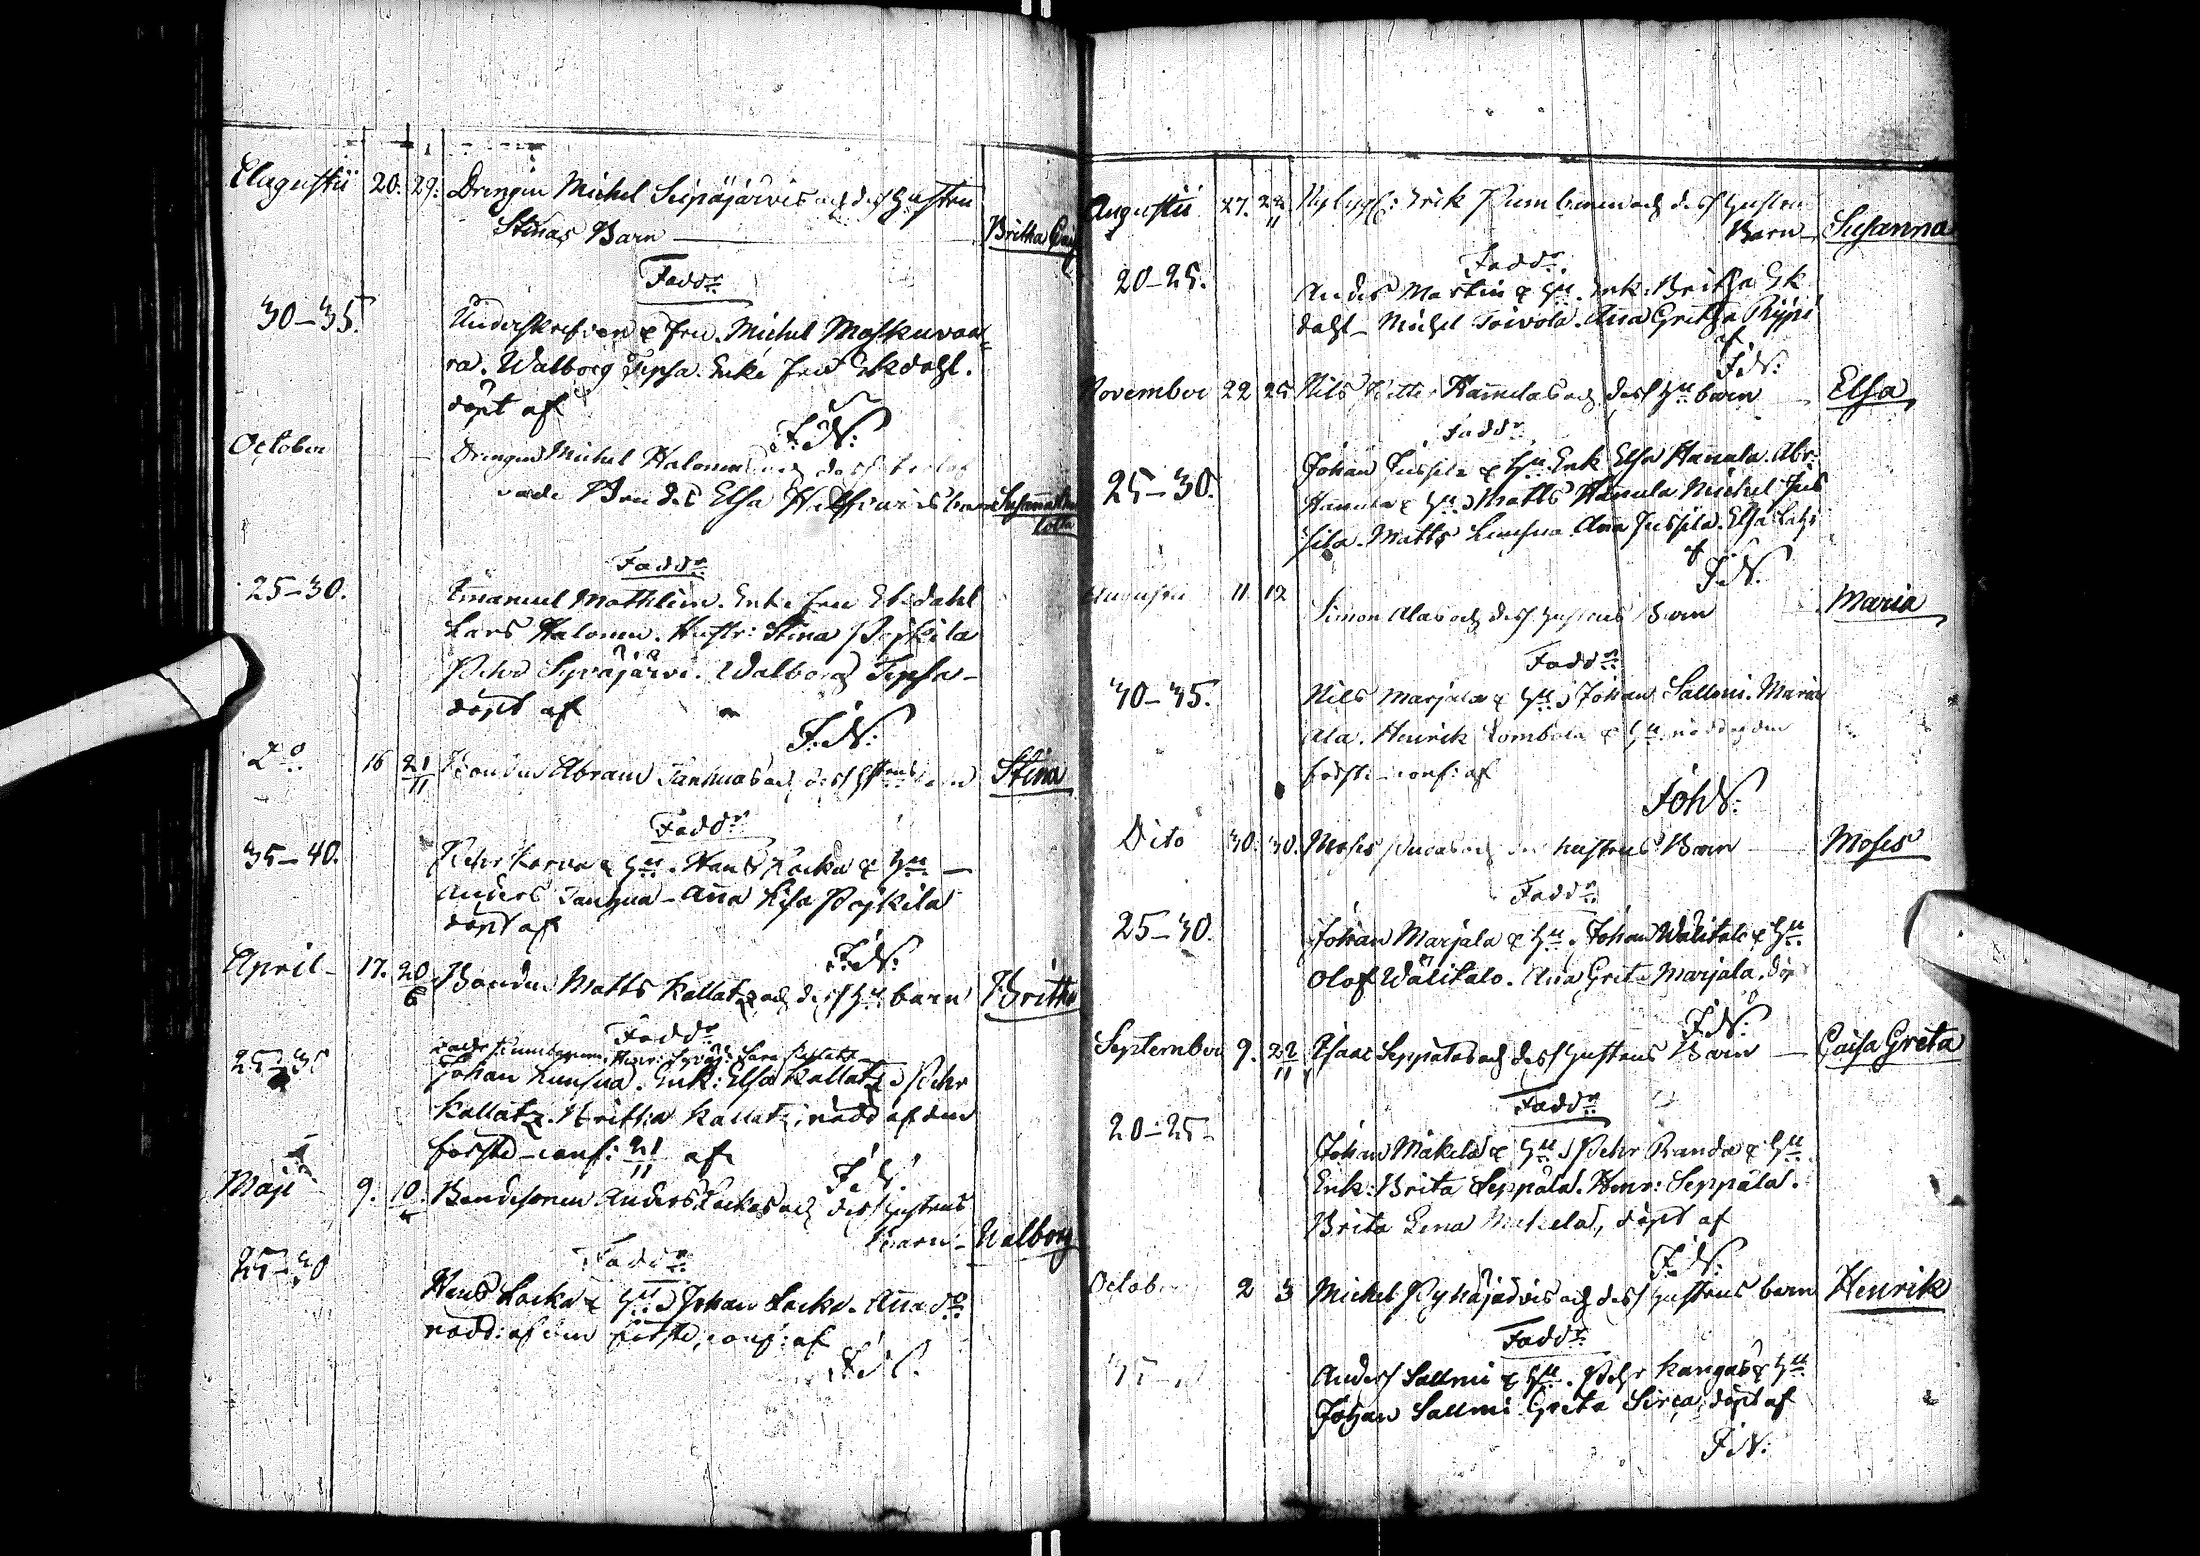 Augustii 20. 29. Drengen Michel Siepäjärvis och dess Hustru
Stinas Barn — Britha
Faddr:
30–35. Underskrefven & fru. Michel Moskuvaa=
ra. Walborg Tepsa. Enke fru Ekdahl.
döpt af
J.N:
October Drengen Michel Halonen och dess
vade Brudes Elsa barn Susanna
Lotta
Faddr:
25–30. Emanuel Mathlein. Enke fru Ekdahl
Lars Halonen. Hustr: Stina Poikila
Pehr Syväjärvi. Walborg Tepsa –
döpt af
J.N:
Do 16 21/11 Bonden Abram Tanhuas och dess Hustrus Stina
Faddr:
35–40. Pehr Korva & Hu. Hans Kocka & Hu –
Anders Tanhua – Aña Lisa Poikila
döpt af
J.N:
April – 17. 20/6 Bonden Matts Kallatz och dess Hu barn Britha
Faddr:
25–35 Johan Kunsua. Enk: Elsa Kallatz Pehr
Kallatz. Britha Kallatz, nödd af den
förste – conf: 21/11 af
J.N.
Maji 9. 10. Bondesonen Anders Lockas och dess Hustrus
Barn – Walborg
Faddr:
25–30 Hans Locka & Hu Johan Locka. Aña do
nödd: af den förste, conf: af
J.N.
Augustii 27. 22/11 Nybygg: Erik Pumbanen och dess Hustrus
Barn – Susanna
Faddr:
20–25. Anders Martin & Hu. Enk: Britha Ek
dahl – Michel Toivola. Aña Gretha Rÿpi
af
J.N:
November 22 25 Nils Petter Hañulas och dess Hu barn Elsa
Faddr:
25–30. Johan Jussila & Hu Enk Elsa Hañula. Abr:
Hañula & Hu Matts Hañula Michel Jus
sila. Matts Kunsua Aña Jussila. Elsa
af
J.N.
11 12 Simon Alas och dess Hustrus Barn Maria
Faddr:
30–35. Nils Marjala & Hu Johan Sallmi. Maria
Ala. Henrik Lombola & Hu nödd af den
förste – conf: af
Joh N:
Dito 30. 30. Moses och dess Hustrus Barn Moses
Faddr:
25–30. Johan Marjala & Hu. Johan Wälitalo & Hu
Olof Wälitalo. Aña Greta Marjala, döp
J.N:
September 9. 22/11 Isaac Seppälas och dess Hustrus Barn — Caisa Greta
Faddr:
20–25 Johan Mäkelä & Hu Pehr Randa & Hu
Enk: Brita Seppälä. Henr: Seppälä.
Brita Lena Mäkelä, döpt af
J.N:
Octob 2 3 Michel Pyhäjärvis och dess Hustrus barn Henrik
Faddr:
35 – Anders Sallmi & Hu. Pehr Kangas & Hu
Johan Sallmi Greta Sirca, döpt af
J.N: